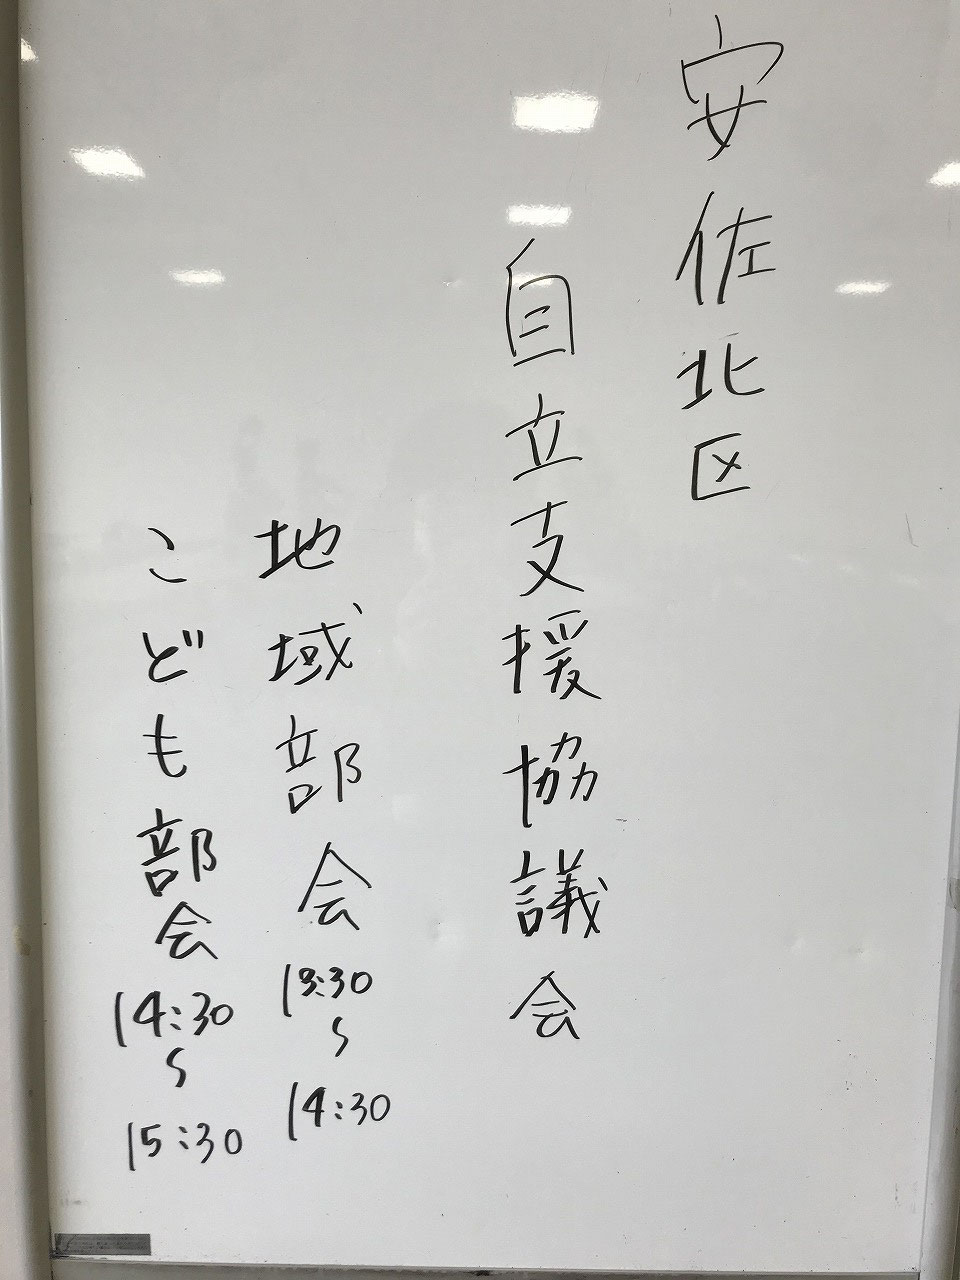 安佐北区
自立支援協議会
地域部会 13:30〜14:30
こども部会 14:30〜15:30